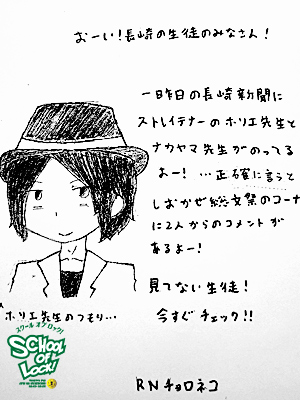 おーい！長崎の生徒のみなさん！
一昨日の長崎新聞に
ストレイテナーのホリエ先生と
ナカヤマ先生がのってる
よー！…正確に言うと
しおかぜ総文祭のコーナ
に2人からのコメントが
あるよー！
見てない生徒！
今すぐチェック!!
ホリエ先生のつもり…
スクール オブ ロック！
SCHOOL OF LOCK!
RNチョロネコ